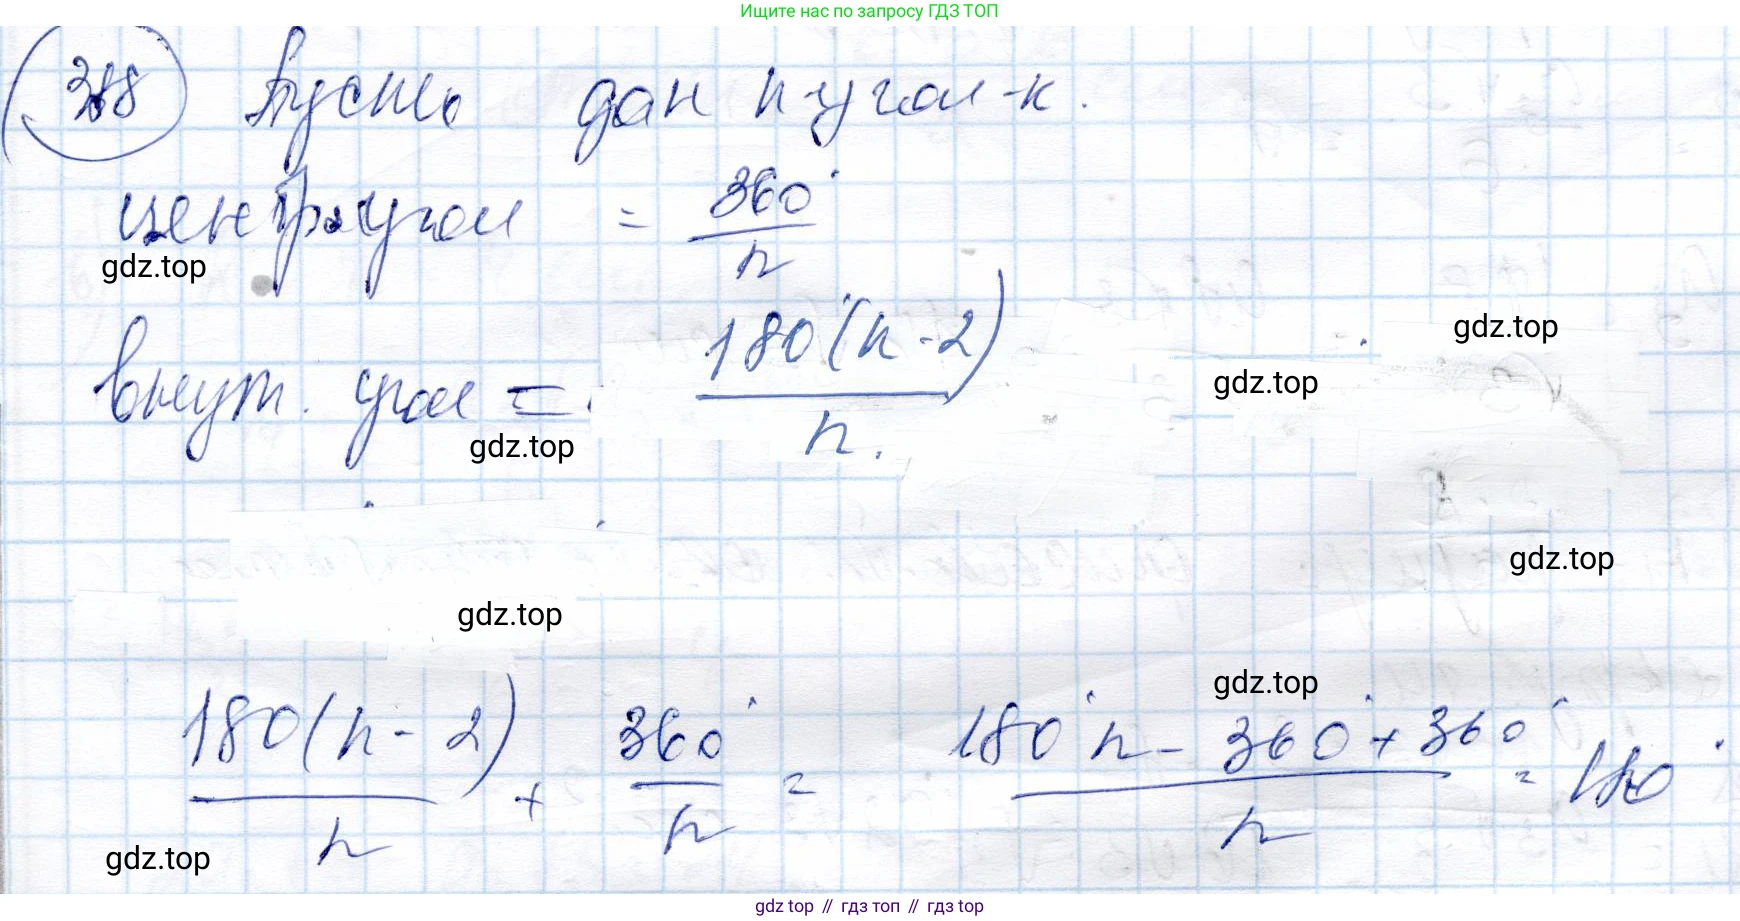 Ищите нас по запросу ГДЗ ТОП
388 Пусть дан n-угол-к.
центр. угол = 360° / n
gdz.top
внут. угол = 180°(n-2) / n.
gdz.top
gdz.top
gdz.top
gdz.top
gdz.top
gdz.top
180(n-2) / n + 360° / n = 180°n - 360° + 360° / n = 180°
gdz.top
gdz top // гдз топ // гдз top